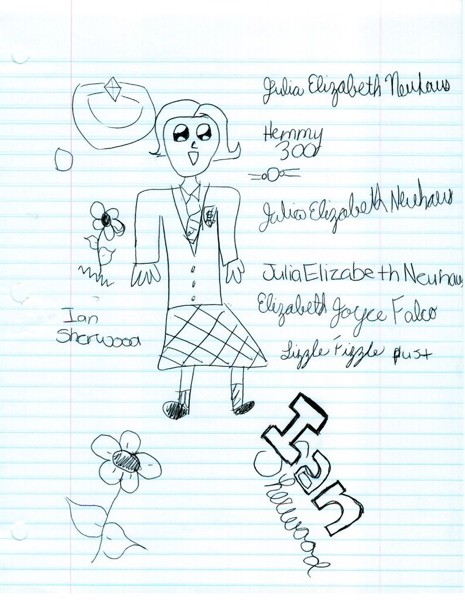 Julia Elizabeth Neuhaus
Hemmy
300
Julia Elizabeth Neuhaus
Julia Elizabeth Neuhaus
Elizabeth Joyce Falco
Lizzle Fizzle Dust
Ian
Sherwood
Ian
Sherwood